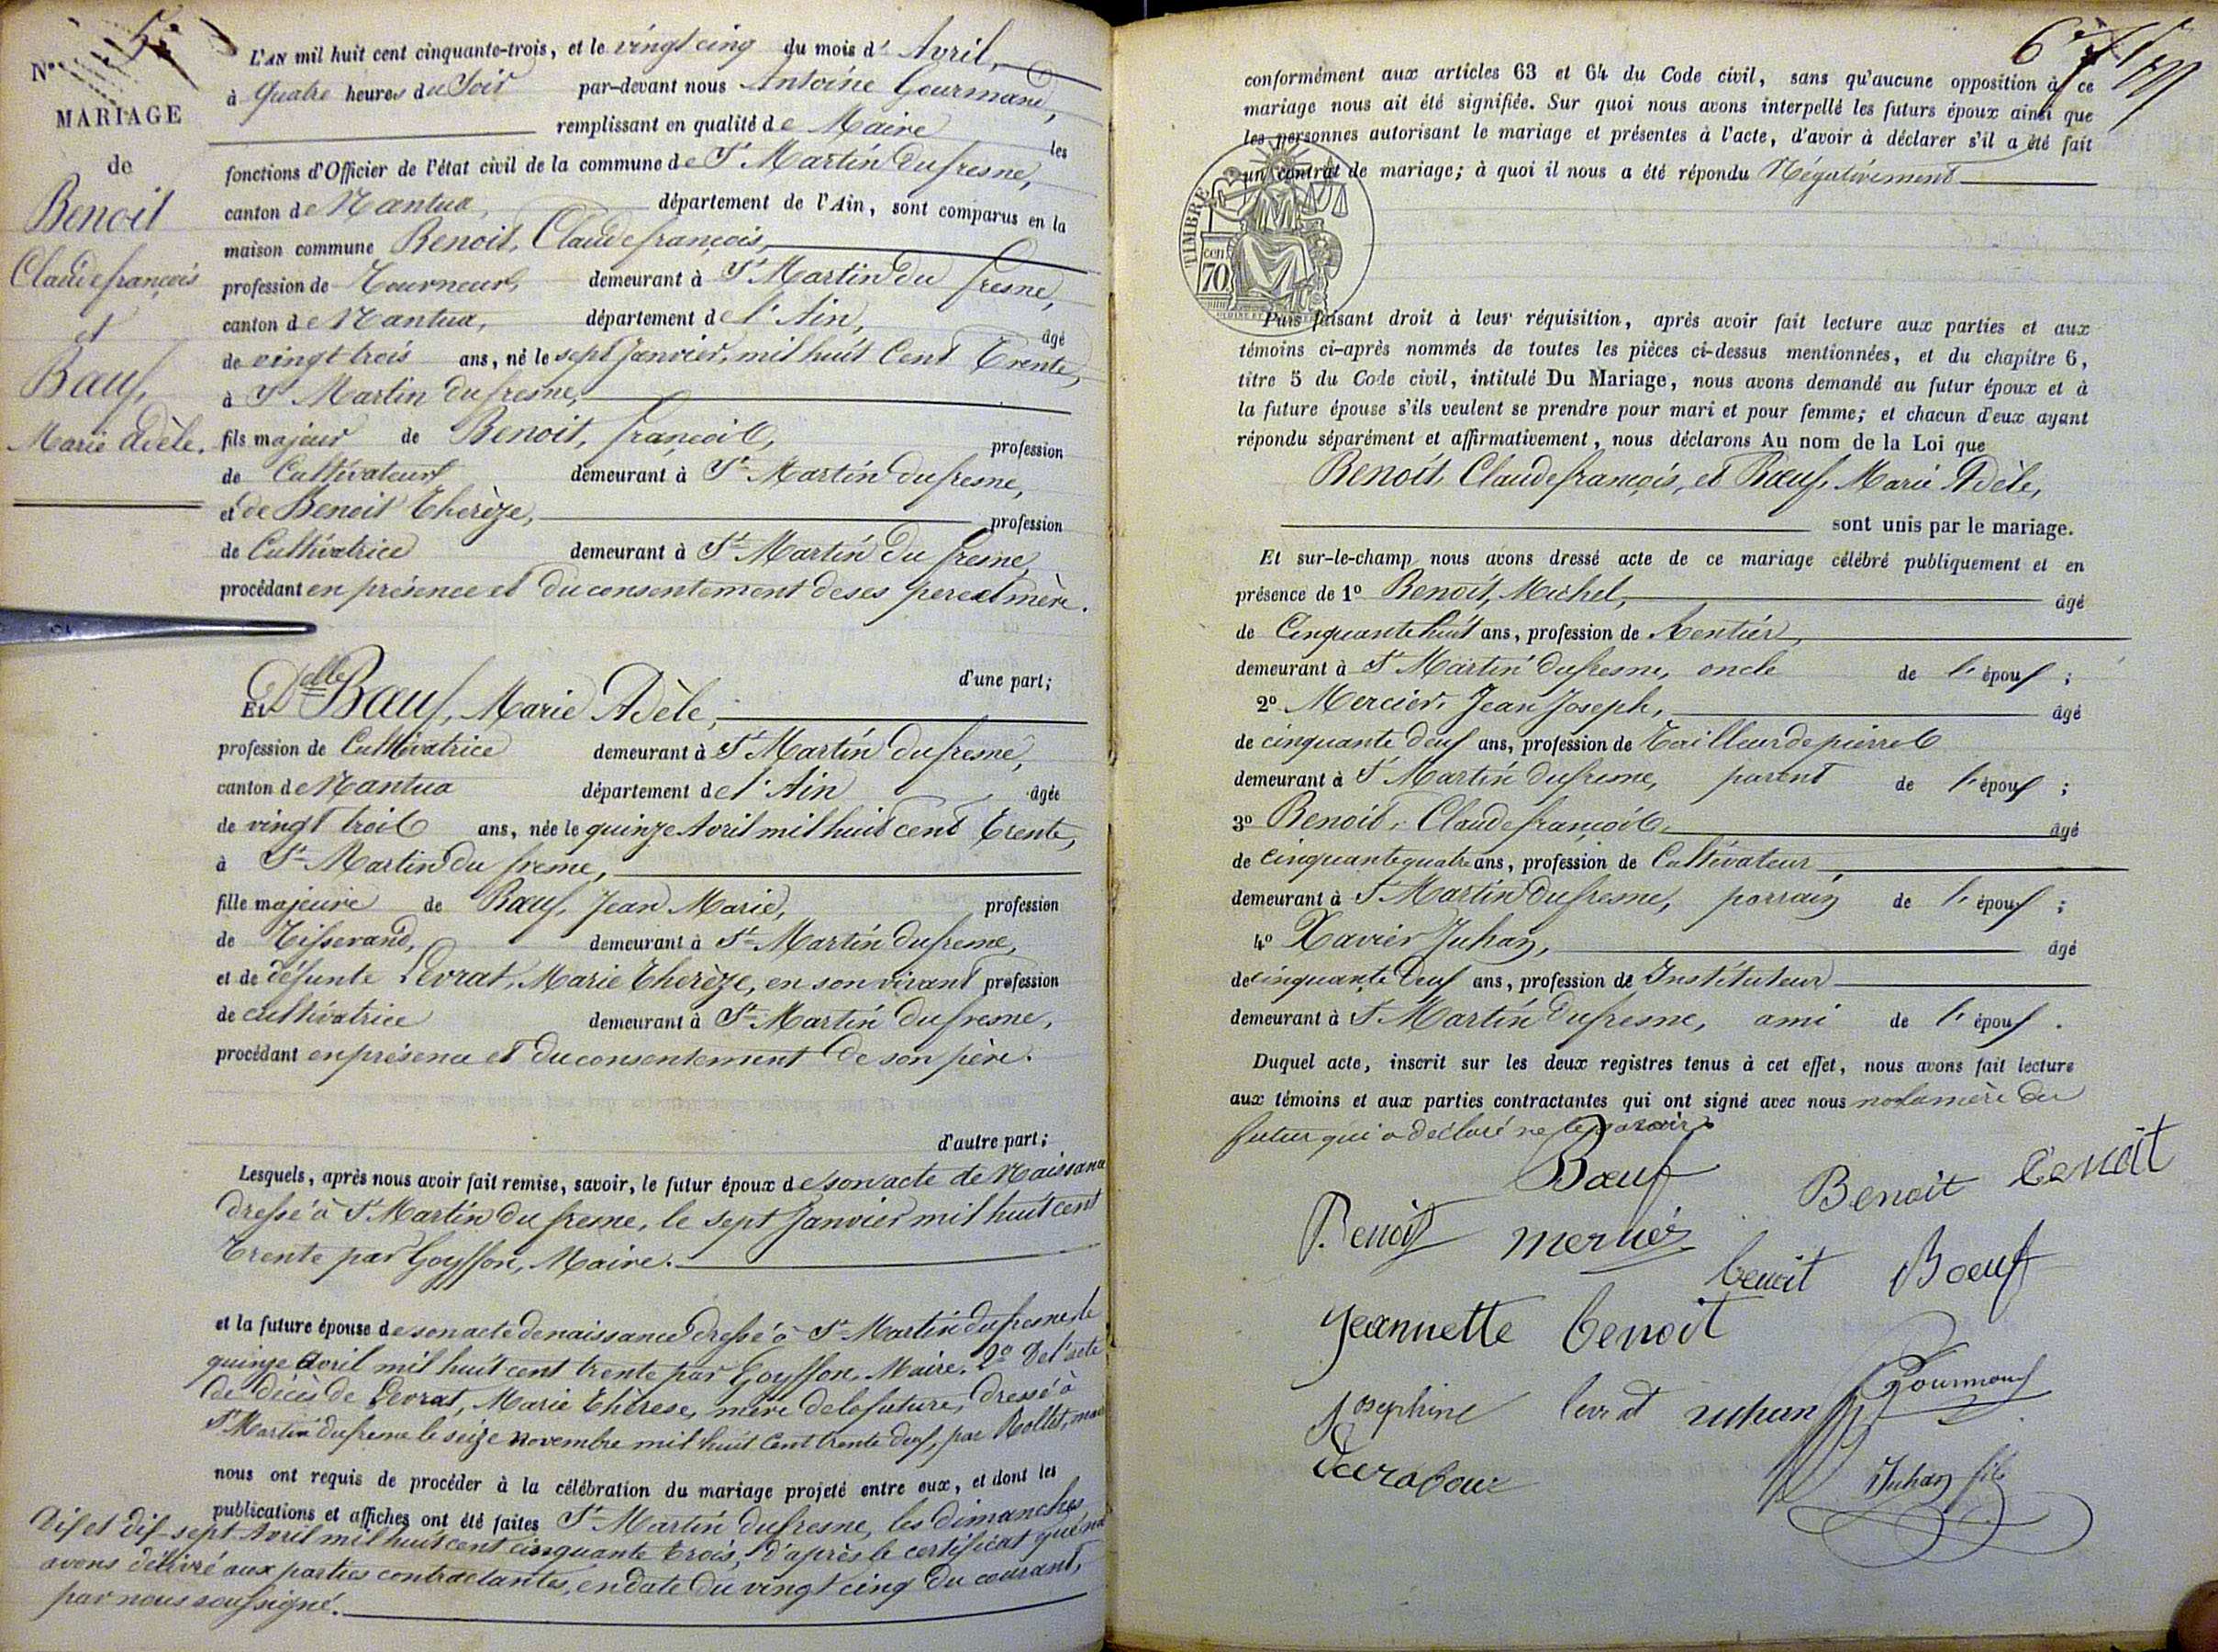 N° 5.
MARIAGE
de
Benoit
Claude françois
et
Bœuf,
Marie Adèle.
L'AN mil huit cent cinquante-trois, et le vingt cinq du mois d' Avril,
à Quatre heures du Soir par-devant nous Antoine Gourmand,
remplissant en qualité de Maire les
fonctions d'Officier de l'état civil de la commune de St Martin du fresne,
canton de Nantua, département de l'Ain, sont comparus en la
maison commune Benoit, Claude françois,
profession de Tourneur, demeurant à St Martin du fresne,
canton de Nantua, département de l'Ain, âgé
de vingt trois ans, né le sept Janvier, mil huit Cent Trente,
à St Martin du fresne,
fils majeur de Benoit, françois, profession
de Cultivateur demeurant à St Martin du fresne,
et de Benoit Therèze, profession
de Cultivatrice demeurant à St Martin du fresne,
procédant en présence et du consentement de ses pere et mère.
d'une part;
Et Delle Bœuf, Marie Adèle,
profession de Cultivatrice demeurant à St Martin du fresne,
canton de Nantua département de l'Ain âgée
de vingt trois ans, née le quinze Avril mil huit cent Trente,
à St Martin du fresne,
fille majeure de Bœuf, Jean Marie, profession
de Tisserand, demeurant à St Martin du fresne,
et de défunte Levrat, Marie Therèze, en son vivant profession
de cultivatrice demeurant à St Martin du fresne,
procédant en présence et du consentement de son père.
d'autre part;
Lesquels, après nous avoir fait remise, savoir, le futur époux de son acte de Naissance
dressé à St Martin du fresne, le sept Janvier mil huit cent
Trente par Goyffon, Maire.
et la future épouse de son acte de naissance dressé à St Martin du fresne, le
quinze avril mil huit cent trente par Goyffon, Maire. 2° De l'acte
de décès de Levrat, Marie Thérese, mère de la future, dressé à
St Martin du fresne le seize novembre mil huit Cent trente deux, par Rollet, maire
nous ont requis de procéder à la célébration du mariage projeté entre eux, et dont les
publications et affiches ont été faites St Martin du fresne, les dimanches
dix et dix-sept Avril mil huit cent cinquante trois, d'après le certificat que nous
avons délivré aux parties contractantes, en date du vingt cinq du courant,
par nous soussigné.
6e
conformément aux articles 63 et 64 du Code civil, sans qu'aucune opposition à ce
mariage nous ait été signifiée. Sur quoi nous avons interpellé les futurs époux ainsi que
les personnes autorisant le mariage et présentes à l'acte, d'avoir à déclarer s'il a été fait
un contrat de mariage; à quoi il nous a été répondu Négativement
TIMBRE
cen
70
Puis faisant droit à leur réquisition, après avoir fait lecture aux parties et aux
témoins ci-après nommés de toutes les pièces ci-dessus mentionnées, et du chapitre 6,
titre 5 du Code civil, intitulé Du Mariage, nous avons demandé au futur époux et à
la future épouse s'ils veulent se prendre pour mari et pour femme; et chacun d'eux ayant
répondu séparément et affirmativement, nous déclarons Au nom de la Loi que
Benoit, Claude françois, et Bœuf, Marie Adèle,
sont unis par le mariage.
Et sur-le-champ nous avons dressé acte de ce mariage célébré publiquement et en
présence de 1° Benoit, Michel, âgé
de Cinquante huit ans, profession de Rentier,
demeurant à St Martin du fresne, oncle de l'époux ;
2° Mercier, Jean Joseph, âgé
de cinquante deux ans, profession de Tailleur de pierres
demeurant à St Martin du fresne, parent de l'époux ;
3° Benoit, Claude françois, âgé
de cinquante quatre ans, profession de Cultivateur,
demeurant à St Martin du fresne, parrain de l'époux ;
4° Xavier Juhan, âgé
de cinquante deux ans, profession de Instituteur
demeurant à St Martin du fresne, ami de l'époux .
Duquel acte, inscrit sur les deux registres tenus à cet effet, nous avons fait lecture
aux témoins et aux parties contractantes qui ont signé avec nous non la mère du
futur qui a déclaré ne le savoir
Bœuf Benoit Benoit
Benoit mercier
benoit Boeuf
Jeannette benoit
Gourmand
Josephine levrat Juhan
Juhan fils